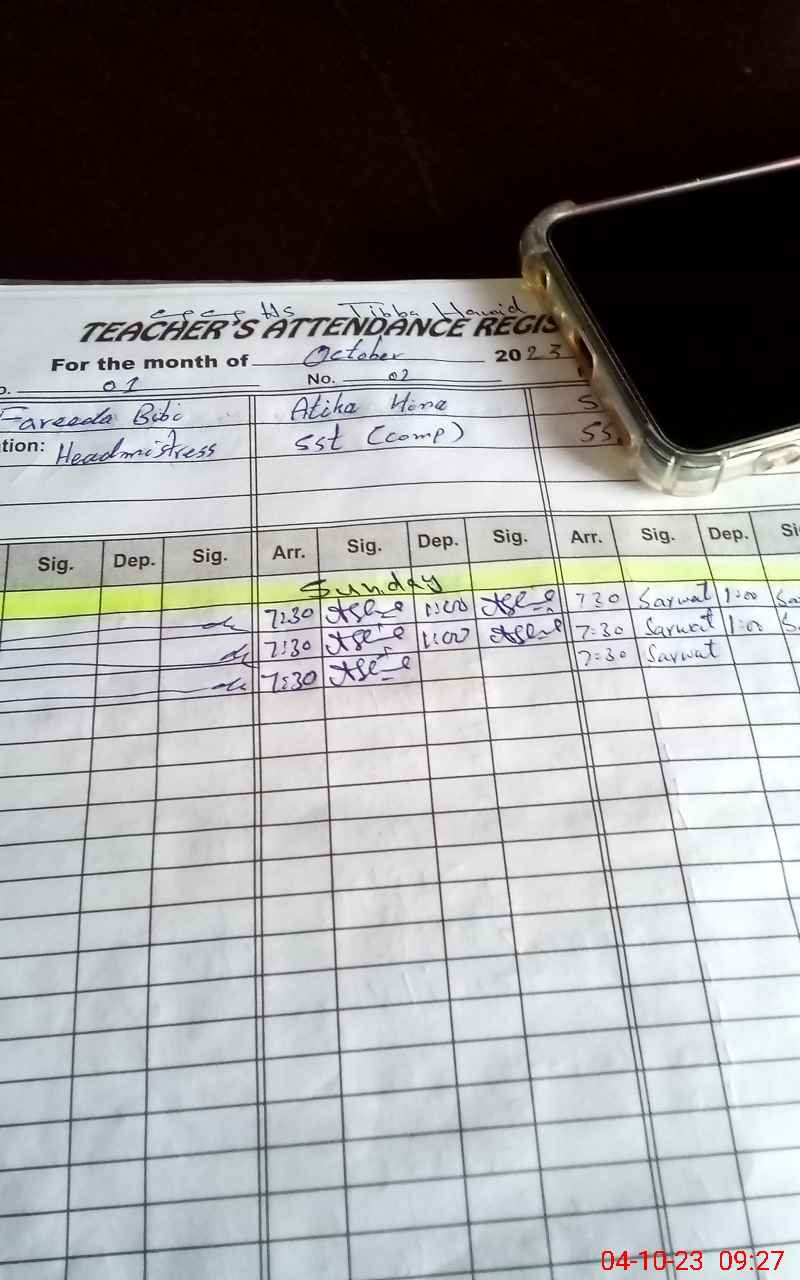 Tibba Hamid
TEACHER'S ATTENDANCE REGIS
For the month of October 2023
01 No. 02
Fareeda Bibi Atika Hina S
tion: Headmistress SST (Comp) SS
Sig. Dep. Sig. Arr. Sig. Dep. Sig. Arr. Sig. Dep. Si
Sunday
7:30 1:00 7:30 Sarwat 1:00 Sa
7:30 1:00 7:30 Sarwat 1:00 S
7:30 7:30 Sarwat
04-10-23 09:27